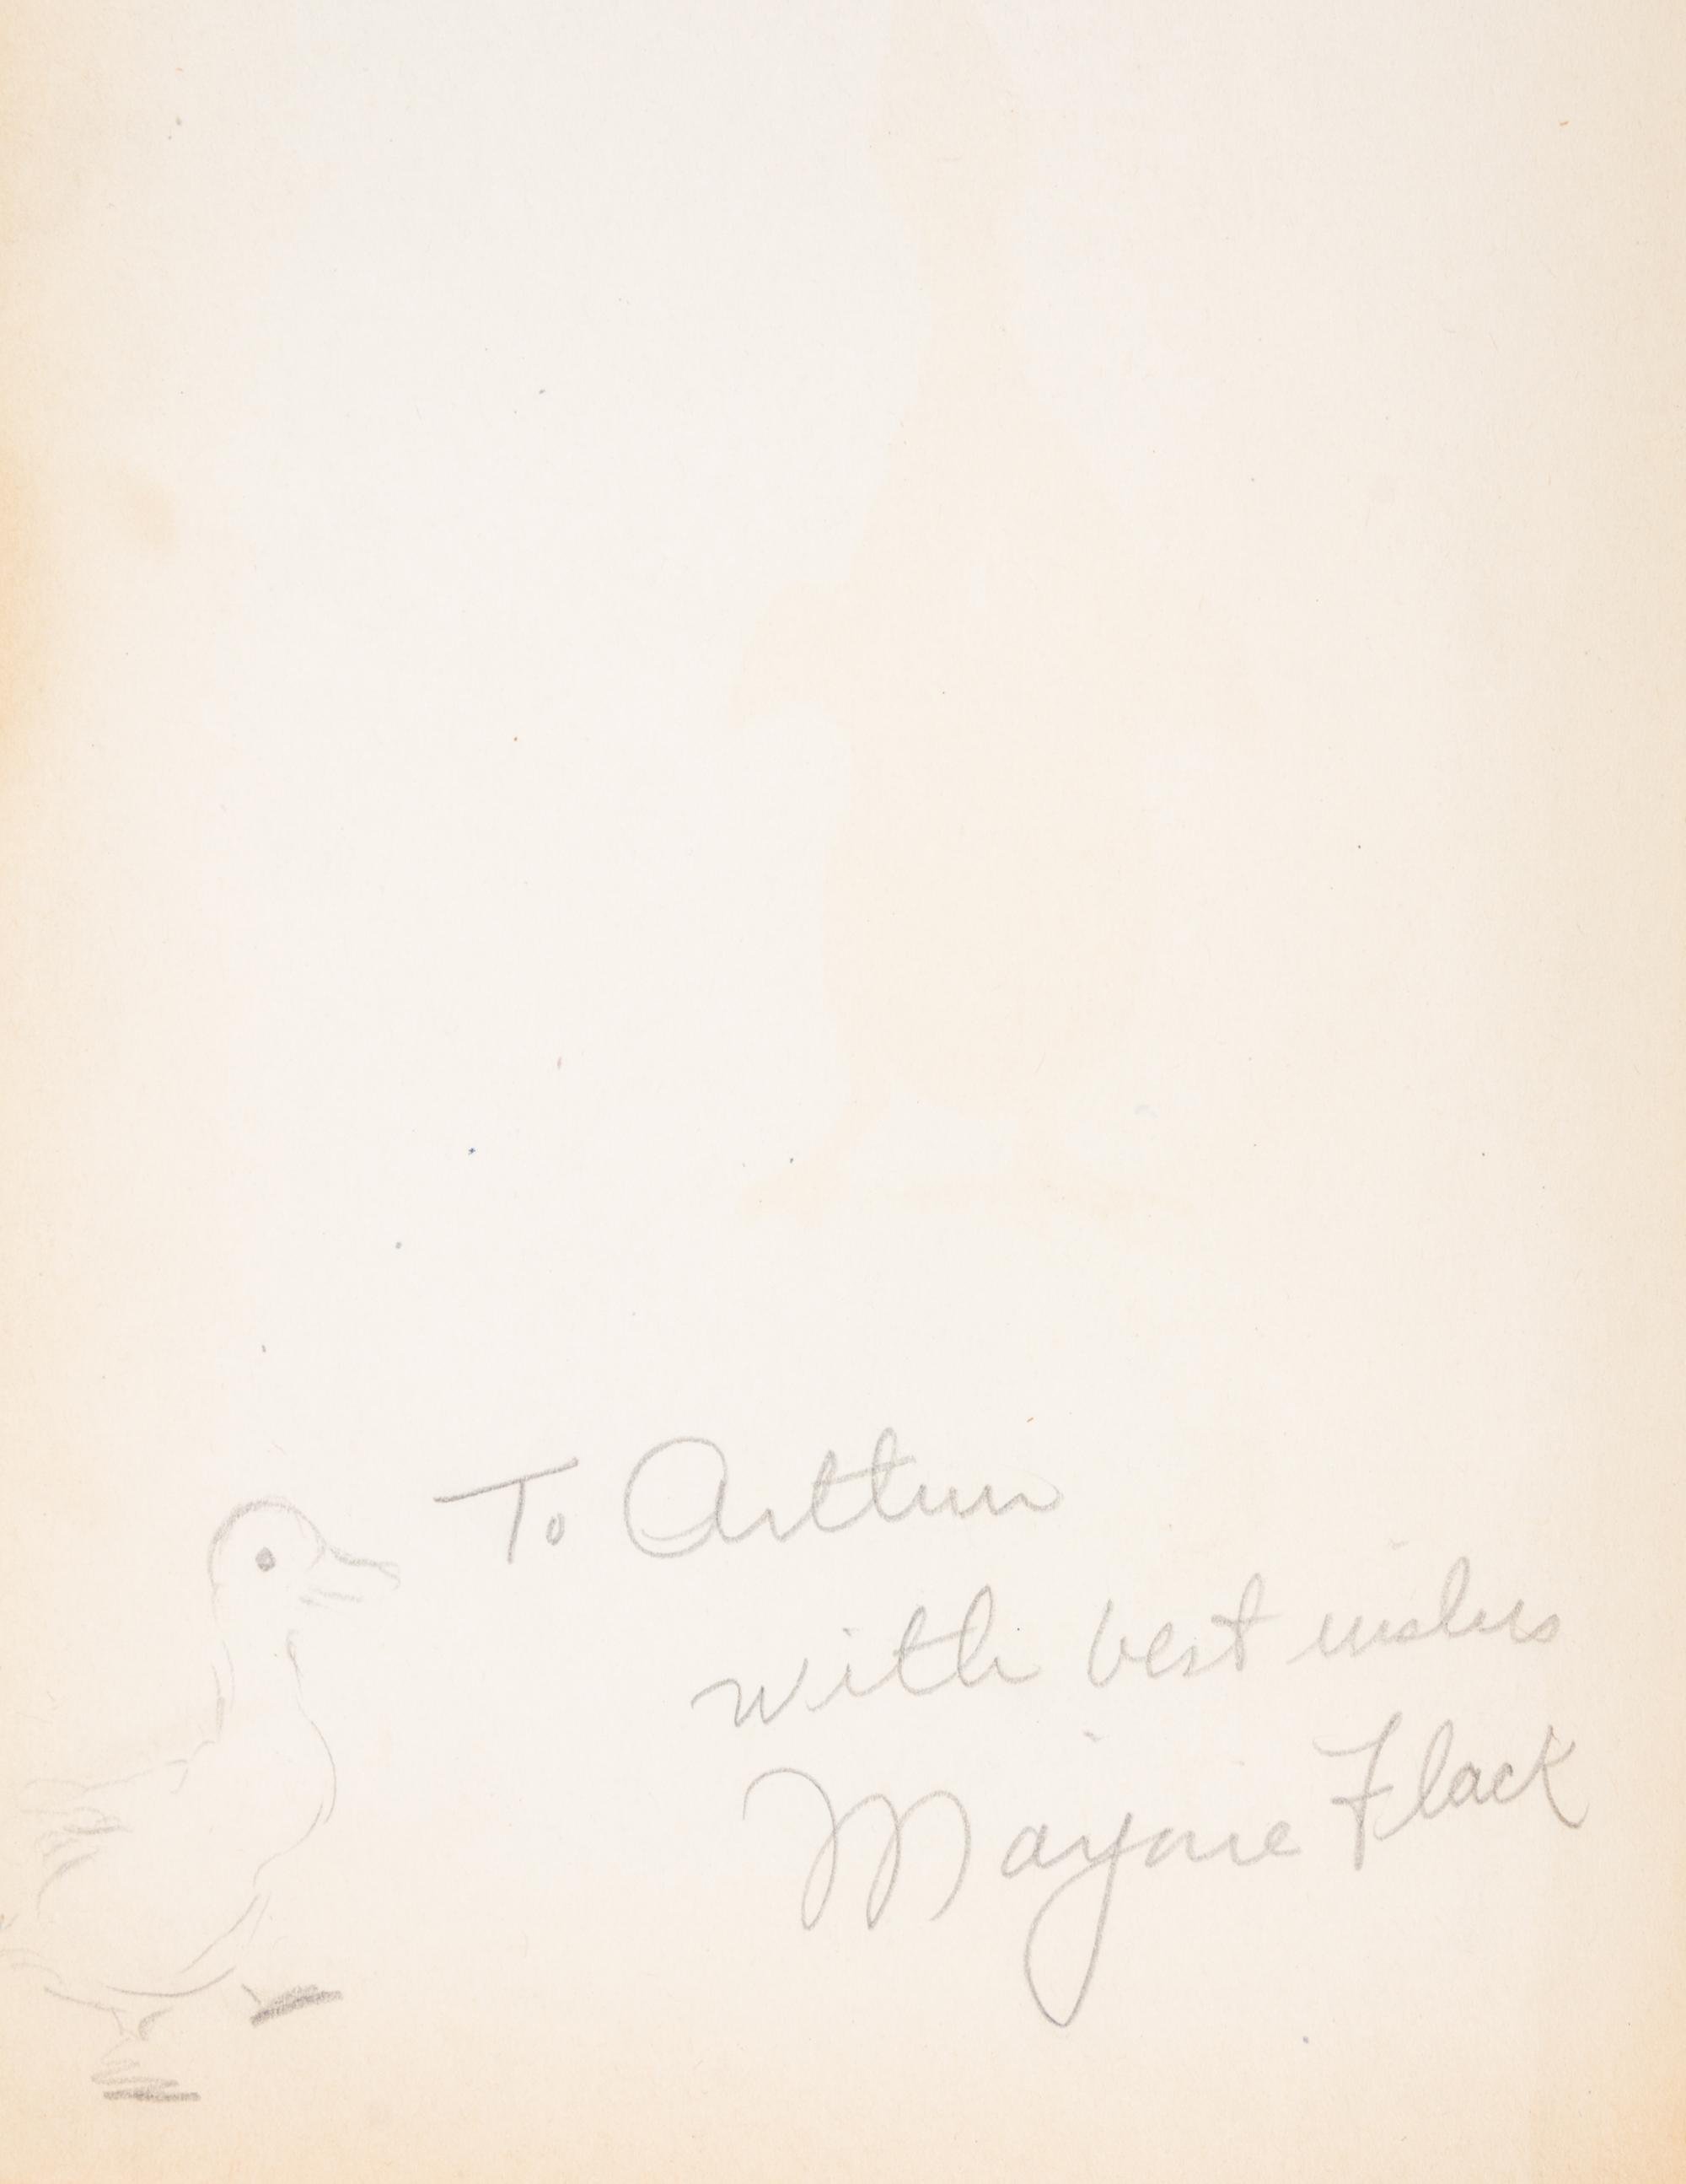 To Arthur
with best wishes
Marjorie Flack